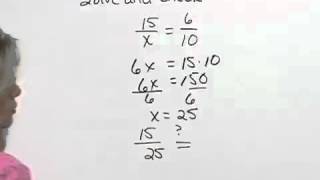 Solve and Check
15/x = 6/10
6x = 15·10
6x/6 = 150/6
x = 25
15/25 ?=